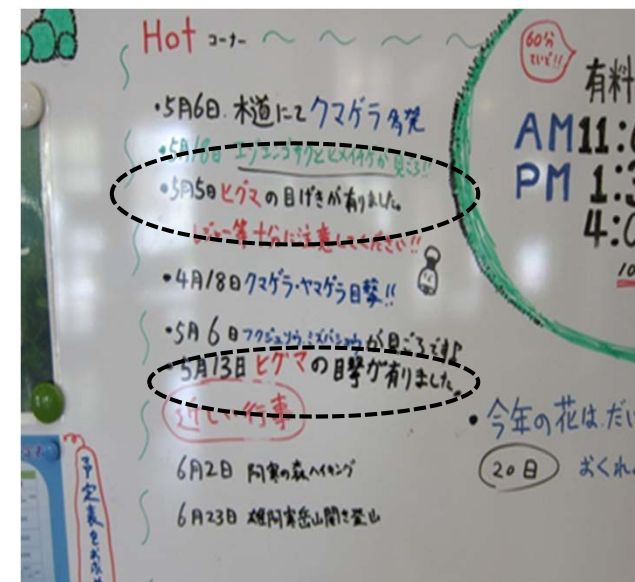 Hot コーナー
60分
・5月6日. 木道にて クマゲラ 多発
・5月18日. エゾエンゴサクとヒメイチゲが 見ごろ!!
・5月5日 ヒグマの目げきが有りました。
等十分に注意してください!!
・4月18日クマゲラ・ヤマゲラ目撃!!
・5月6日 フクジュソウ、ミズバショウが見ごろです♪
・5月13日 ヒグマの目撃が有りました。
行事
6月2日 阿寒の森ハイキング
6月23日 雄阿寒岳山開き登山
有料
AM 11:
PM 1:3
4:0
10
・今年の花は.だい
20日 おくれ
予定表を